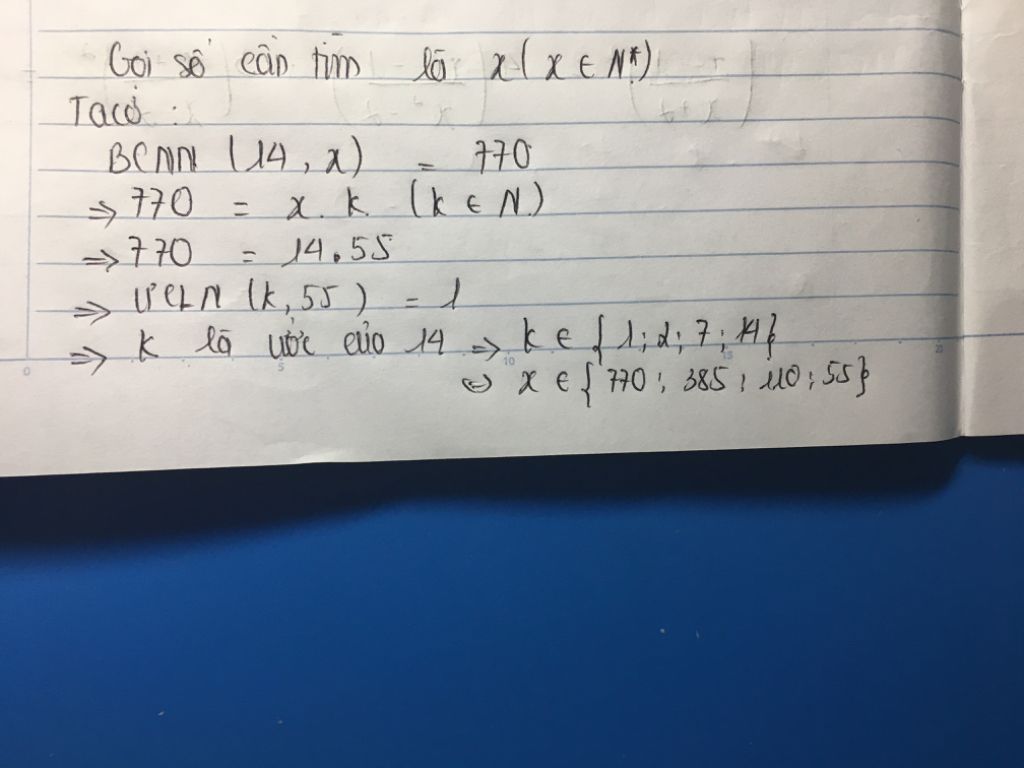 Gọi số cần tìm là x ( x ∈ N*)
Ta có :
BCNN (14, x) = 770
⇒ 770 = x. k. (k ∈ N.)
⇒ 770 = 14.55
⇒ ƯCLN (k, 55) = 1
⇒ k là ước của 14 ⇒ k ∈ { 1; 2; 7; 14}
⇔ x ∈ { 770; 385; 110; 55}
0 5 10 15 20